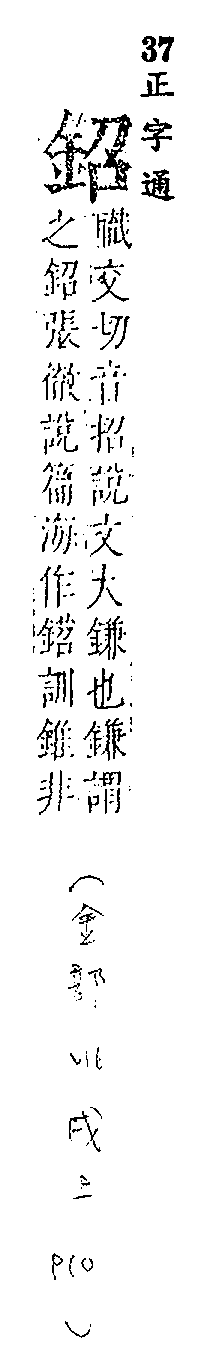 37正字通
鉊
職交切音招說文大鎌也鎌謂
之鉊張徹說篇海作鍣訓錐非
(金部
戌三
P10)